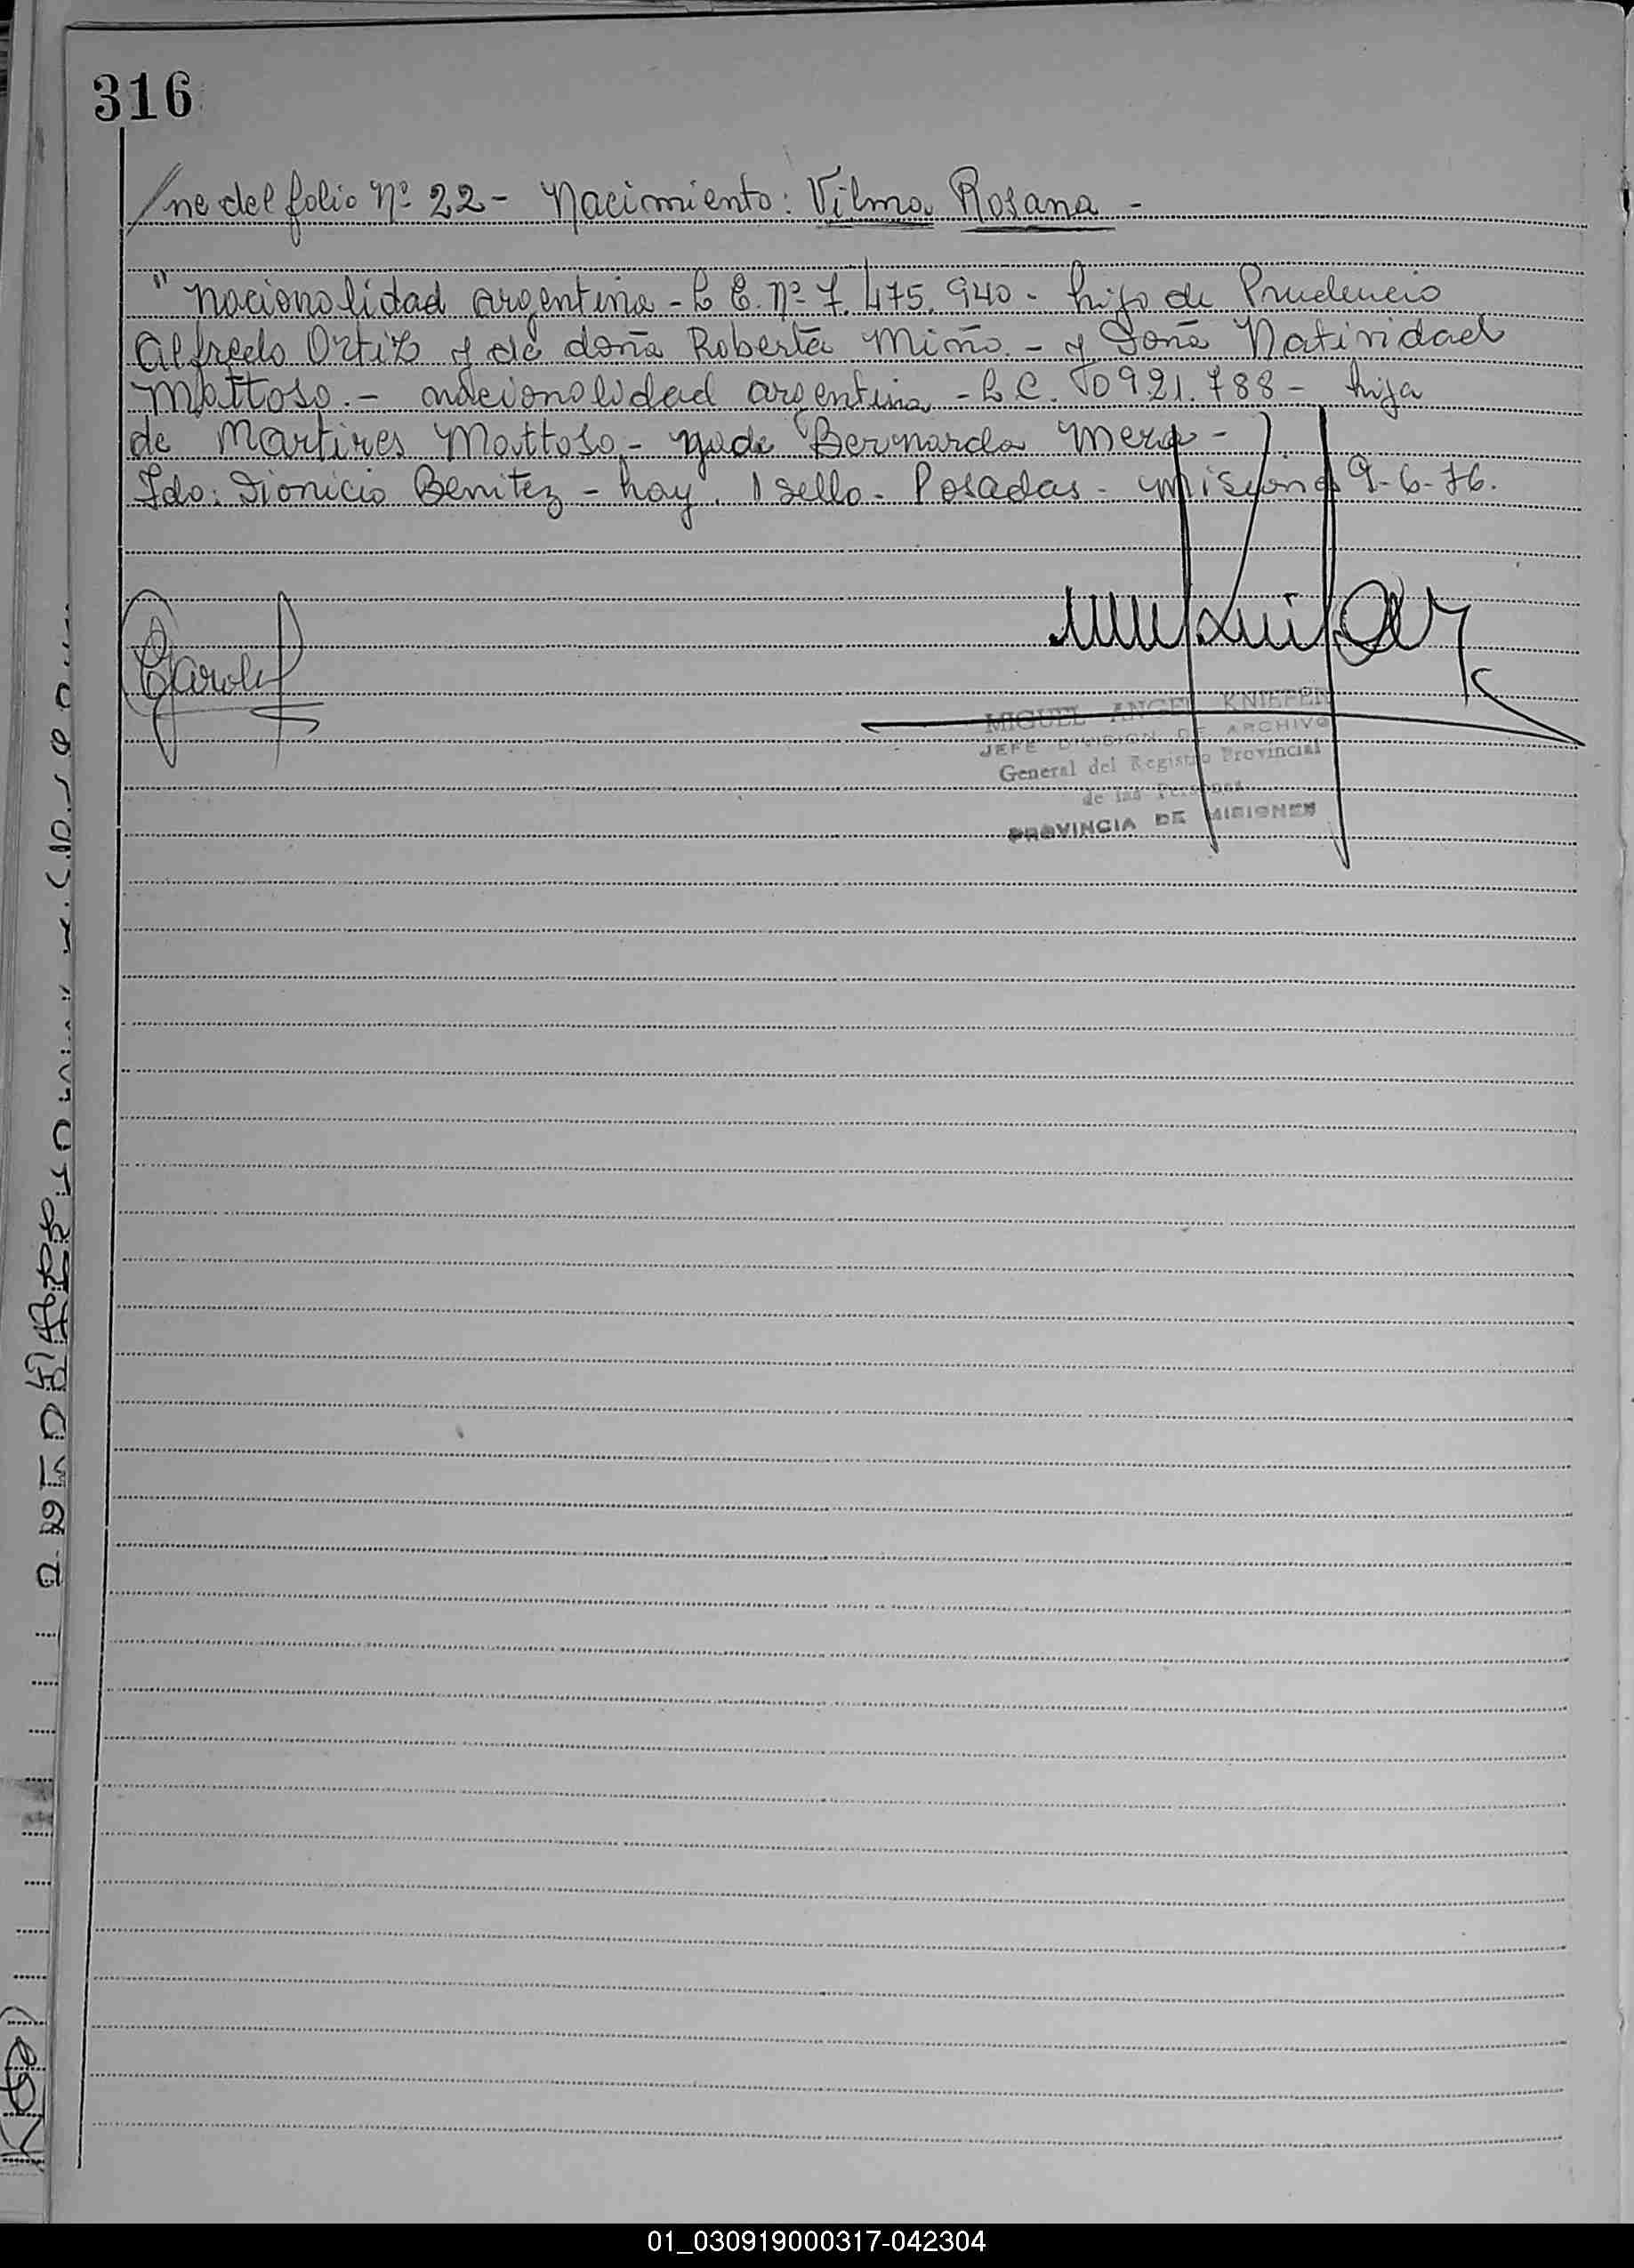 316
/ne del folio Nº 22 - Nacimiento: Vilma Rosana -
" nacionalidad argentina - L E. Nº 7.475.940 - hijo de Prudencio
Alfredo Ortiz y de doña Roberta Miño. - y Doña Natividad
Mattoso. - nacionalidad argentina - L C. 10921.788 - hija
de Martires Mattoso - y de Bernarda Mera -
Fdo: Dionicio Benitez - hay. 1 sello - Posadas - Misiones 9-6-76.
MIGUEL ANGEL KNIEFER
JEFE DIVISION DE ARCHIVO
General del Registro Provincial
de las Personas
PROVINCIA DE MISIONES
01_030919000317-042304